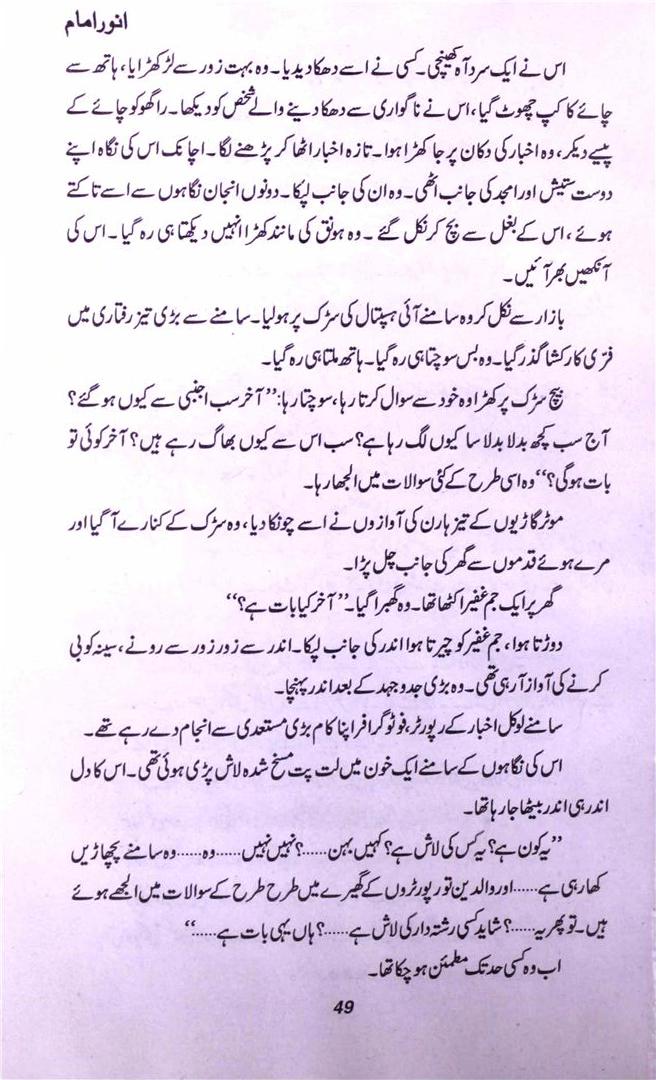 انور امام
اس نے ایک سرد آہ کھینچی۔ کسی نے اسے دھکا دیدیا۔ وہ بہت زور سے لڑکھڑایا، ہاتھ سے
چائے کا کپ چھوٹ گیا، اس نے ناگواری سے دھکا دینے والے شخص کو دیکھا۔ راگھو کو چائے کے
پیسے دیکر، وہ اخبار کی دکان پر جا کھڑا ہوا۔ تازہ اخبار اٹھا کر پڑھنے لگا۔ اچانک اس کی نگاہ اپنے
دوست ستیش اور امجد کی جانب اٹھی۔ وہ ان کی جانب لپکا۔ دونوں انجان نگاہوں سے اسے تاکتے
ہوئے، اس کے بغل سے بچ کر نکل گئے ۔ وہ ہونق کی مانند کھڑا انہیں دیکھتا ہی رہ گیا۔ اس کی
آنکھیں بھر آئیں۔
بازار سے نکل کر وہ سامنے آئی ہسپتال کی سڑک پر ہولیا۔ سامنے سے بڑی تیز رفتاری میں
فرّی کا رکشا گذر گیا۔ وہ بس سوچتا ہی رہ گیا۔ ہاتھ ملتا ہی رہ گیا۔
بیچ سڑک پر کھڑا وہ خود سے سوال کرتا رہا، سوچتا رہا: ”آخر سب اجنبی سے کیوں ہو گئے؟
آج سب کچھ بدلا بدلا سا کیوں لگ رہا ہے؟ سب اس سے کیوں بھاگ رہے ہیں؟ آخر کوئی تو
بات ہوگی؟“ وہ اسی طرح کے کئی سوالات میں الجھا رہا۔
موٹر گاڑیوں کے تیز ہارن کی آوازوں نے اسے چونکا دیا، وہ سڑک کے کنارے آ گیا اور
مرے ہوئے قدموں سے گھر کی جانب چل پڑا۔
گھر پر ایک جم غفیر اکٹھا تھا۔ وہ گھبرا گیا۔ ”آخر کیا بات ہے؟“
دوڑتا ہوا، جم غفیر کو چیرتا ہوا اندر کی جانب لپکا۔ اندر سے زور زور سے رونے، سینہ کوبی
کرنے کی آواز آ رہی تھی۔ وہ بڑی جدوجہد کے بعد اندر پہنچا۔
سامنے لوکل اخبار کے رپورٹر، فوٹو گرافر اپنا کام بڑی مستعدی سے انجام دے رہے تھے۔
اس کی نگاہوں کے سامنے ایک خون میں لت پت مسخ شدہ لاش پڑی ہوئی تھی۔ اس کا دل
اندر ہی اندر بیٹھا جا رہا تھا۔
”یہ کون ہے؟ یہ کس کی لاش ہے؟ کہیں بہن......؟ نہیں نہیں......وہ......وہ سامنے پچھاڑیں
کھا رہی ہے......اور والدین تو رپورٹروں کے گھیرے میں طرح طرح کے سوالات میں الجھے ہوئے
ہیں۔ تو پھر یہ......؟ شاید کسی رشتہ دار کی لاش ہے......؟ ہاں یہی بات ہے......“
اب وہ کسی حد تک مطمئن ہو چکا تھا۔
49